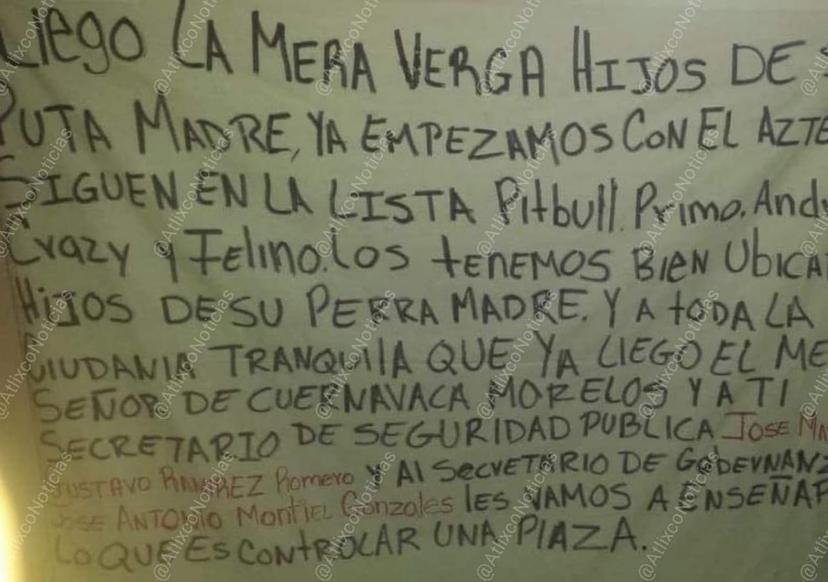 Llego LA MERA VERGA HIJOS DE
PUTA MADRE, YA EMPEZAMOS CON EL AZTE
SIGUEN EN LA LISTA Pitbull. Primo. And
Crazy y Felino. Los tENEMOS BIEN UbICA
HiJOS DE SU PERRA MADRE. Y A tODA LA
CIUDANIA TRANQUilA QUE YA LlEGO EL ME
SEÑOR DE CUERNAVACA MORELOS Y A TI
SECRETARIO DE SEGURIDAD PUBLICA JOSE MA
GUSTAVO RAMIREZ Romero Y Al SECVETARIO DE GOBEVNANZ
JOSE ANTONIO MontiEL Gonzoles lES VAMOS A ENSEÑAR
LO QUE ES CONtROLAR UNA PlAZA.
@AtlixcoNoticias